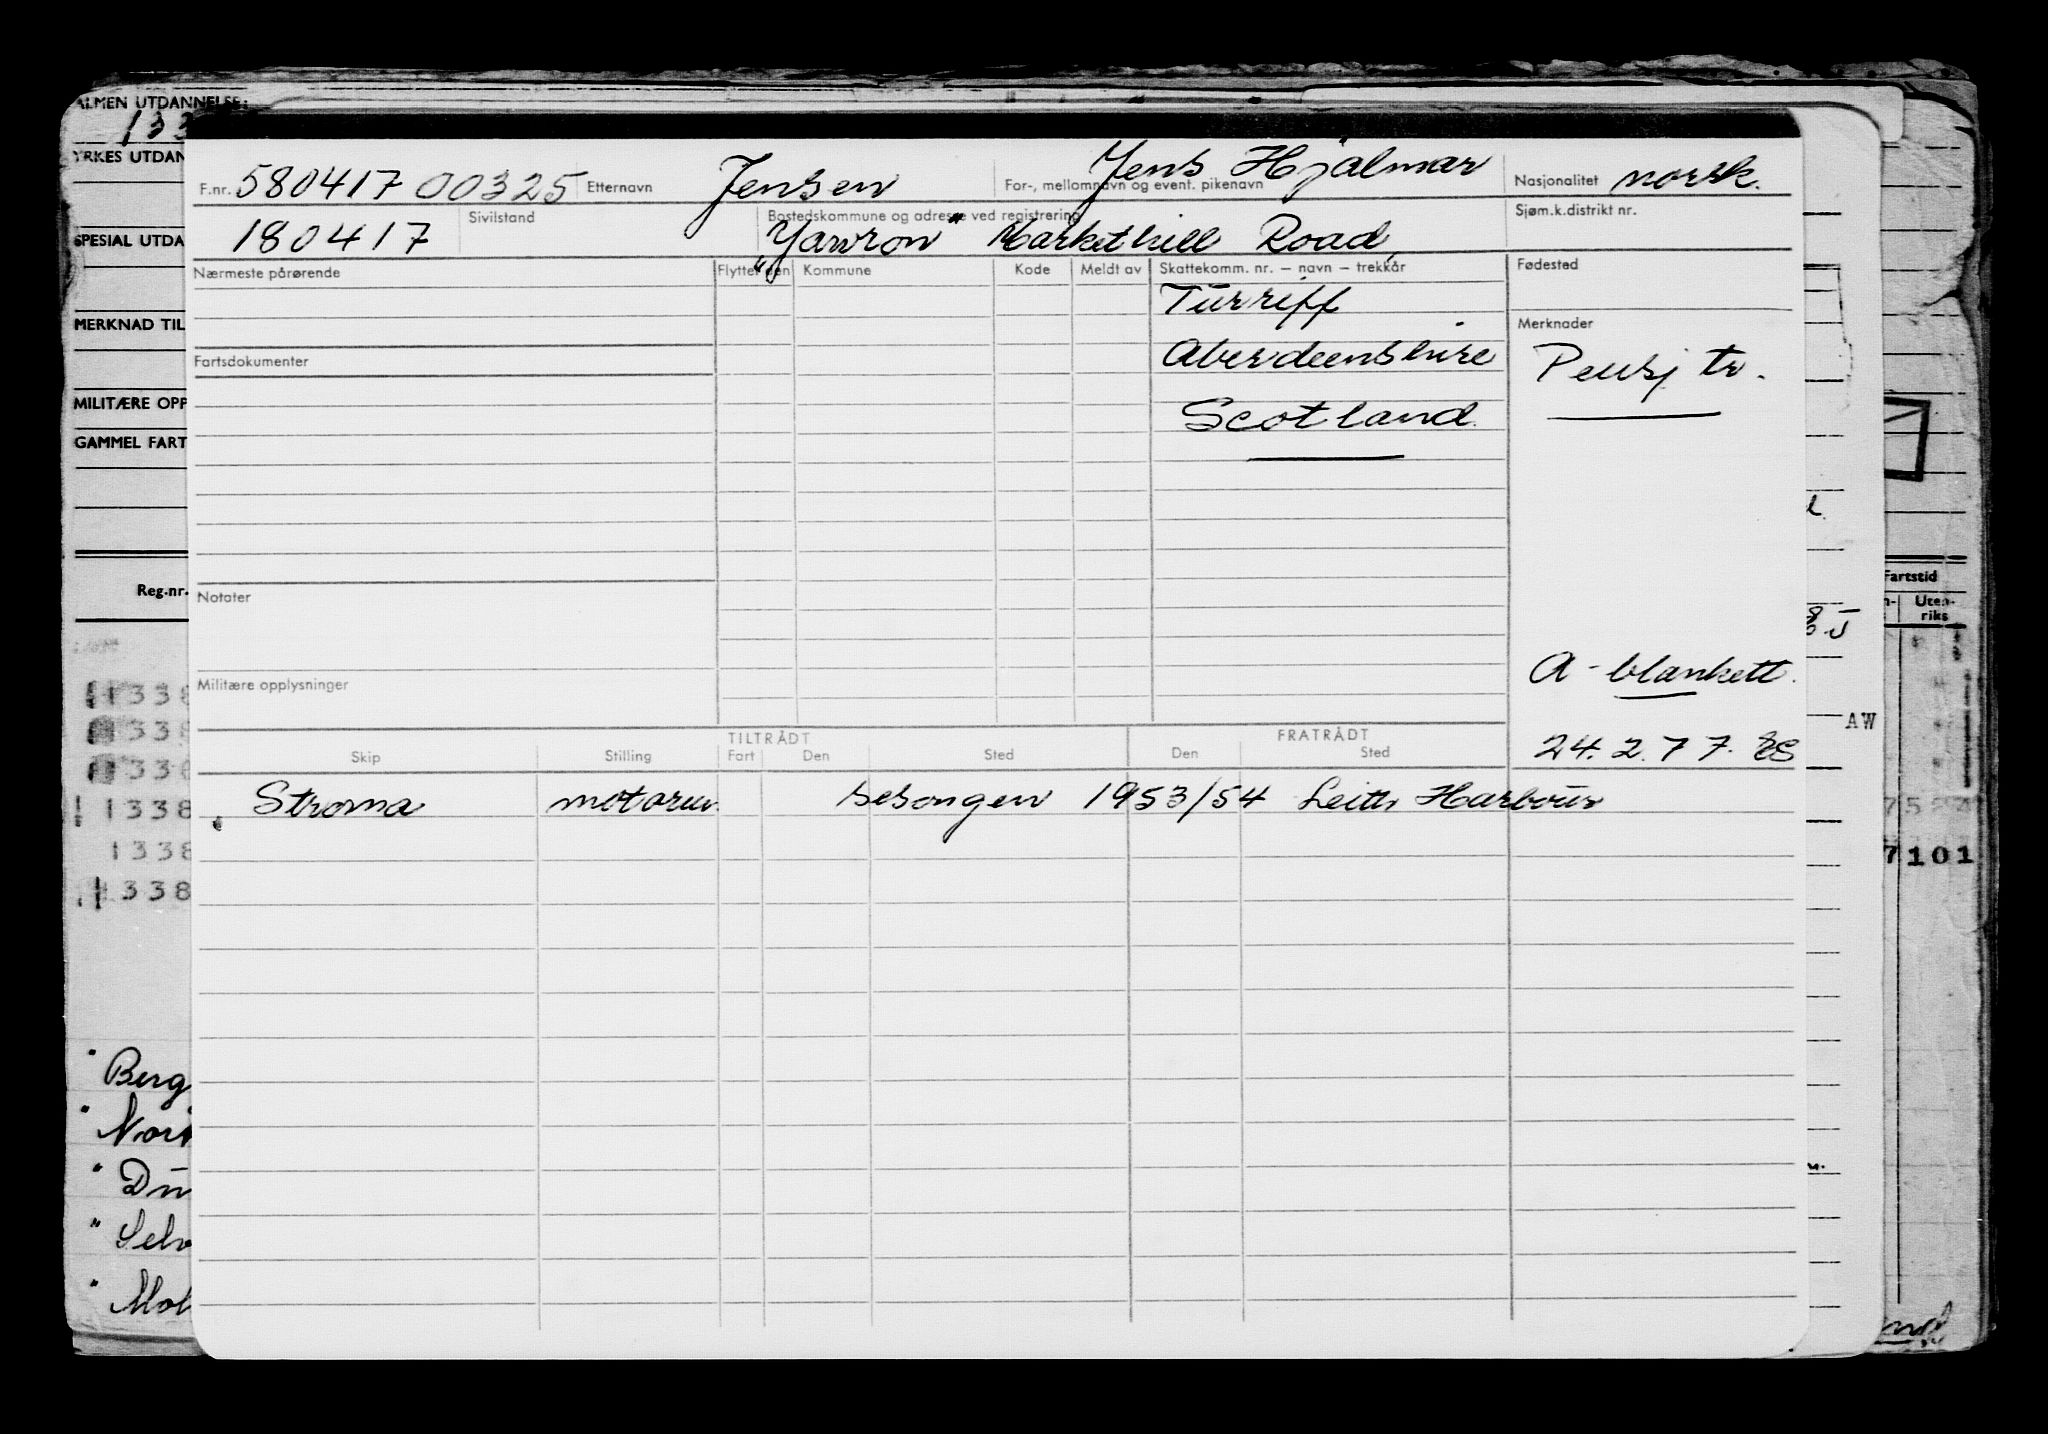 ALMEN UTDANNELSE:
133
YRKES UTDAN
SPESIAL UTDA
MERKNAD TIL
MILITÆRE OPP
GAMMEL FART
Reg.-nr.
1338
338
338
1338
1338
1338
Berg
Nor
Du
Selv
Mol
F.nr. 580417 00325 Etternavn Jensen For-, mellomnavn og event. pikenavn Jens Hjalmar Nasjonalitet norsk.
180417 Sivilstand Bostedskommune og adresse ved registrering "Yawron" Markethill Road, Sjøm.k.distrikt nr.
Nærmeste pårørende Flyttet den Kommune Kode Meldt av Skattekomm. nr. – navn – trekkår Fødested
Turriff
Merknader
Aberdeenshire
Fartsdokumenter
Pensj tr.
Scotland.
Notater
Militære opplysninger
A-blankett.
24.2.77.
TILTRÅDT FRATRÅDT
Skip Stilling Fart Den Sted Den Sted
Stroma motorm. sesongen 1953/54 Leith Harbour
AW
Fartstid
Uten-
riks
7101